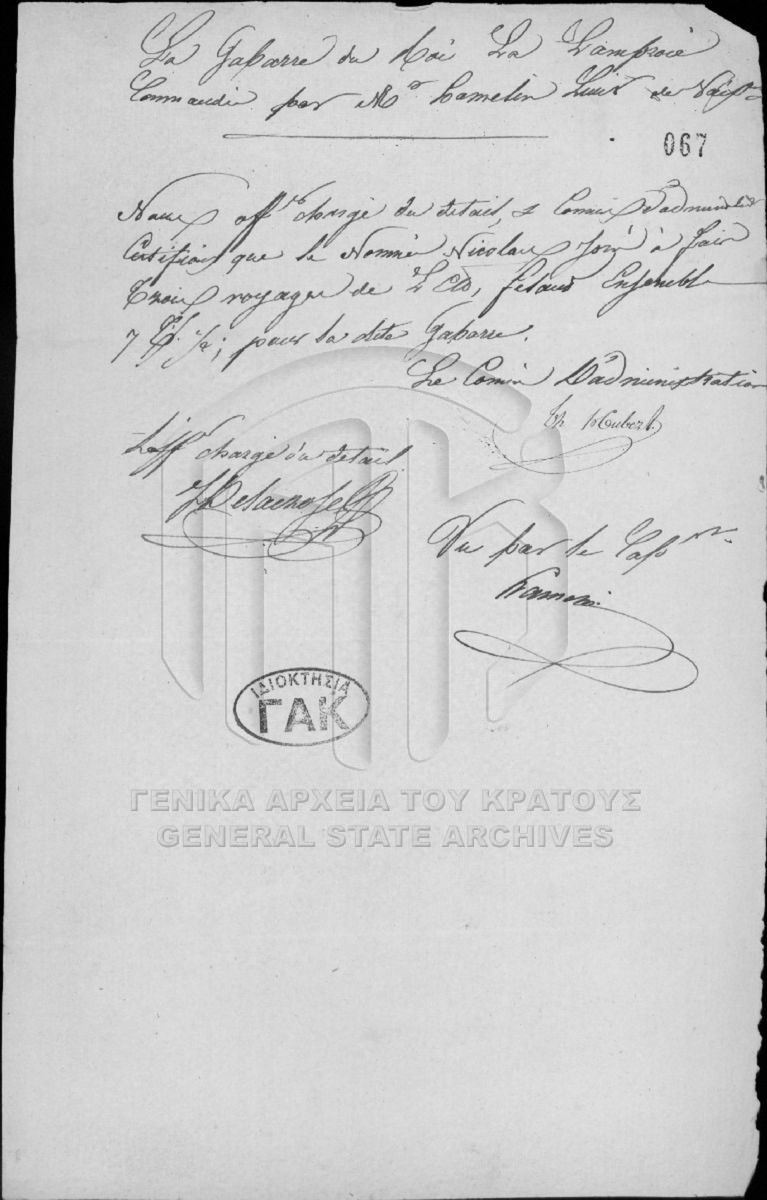 La Gabarre du Roi La Lamproie
Commandée par Mr hamelin Lieut de Vaiss
067
Nous offer chargé du detail, & Commis d'administ
Certifions que le Nommé Nicolau à fait
Trois voyages de L'Eto, fesant Ensemble
7 pour la dite Gabarre.
Le Comis D'administration
hubert
L'offer chargé du detail
Vu par le Capne
hamelin
ΙΔΙΟΚΤΗΣΙΑ
ΓΑΚ
ΓΕΝΙΚΑ ΑΡΧΕΙΑ ΤΟΥ ΚΡΑΤΟΥΣ
GENERAL STATE ARCHIVES